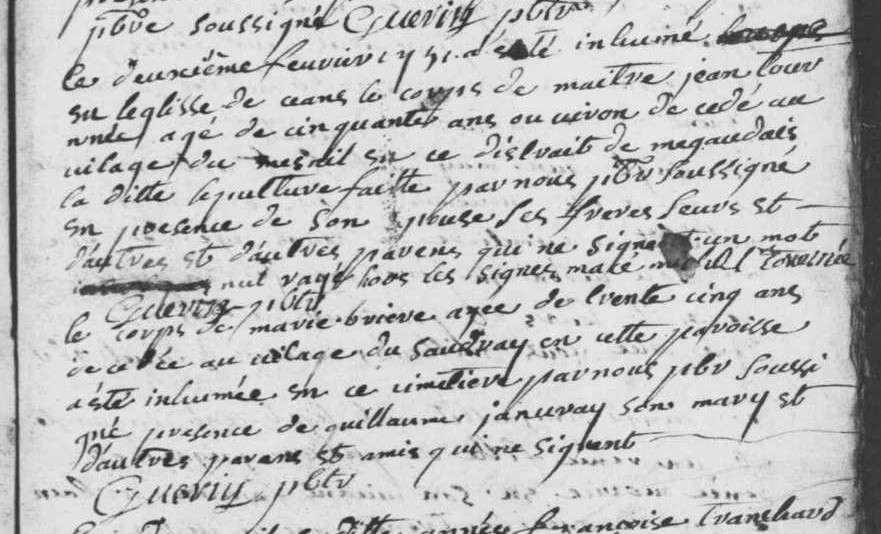 pbre soussigné Guerin pbtr
le deuxième feuvrier y a esté inhumé
en leglisse de ceans le corps de maitre jean tour
nnée agé de cinquante ans ou uiron de cedé au
uilage du mesnil en ce distrait de megaudais
la ditte sepulture faitte par nous pbtr soussigné
en presence de son epouse ses freres seurs et
d'autres et d'autres parens qui ne signent un mot
nul rayé hors les signes Tournée
Guerin pbtr
le corps de marie briere agee de trente cinq ans
decedée au uilage du saudray en cette paroisse
a été inhumée en ce cimetiere par nous pbtr soussi
gné presence de guillaume januray son mary et
d'autres parens et amis qui ne signent
Guerin pbtr
ditte année françoise tranchard